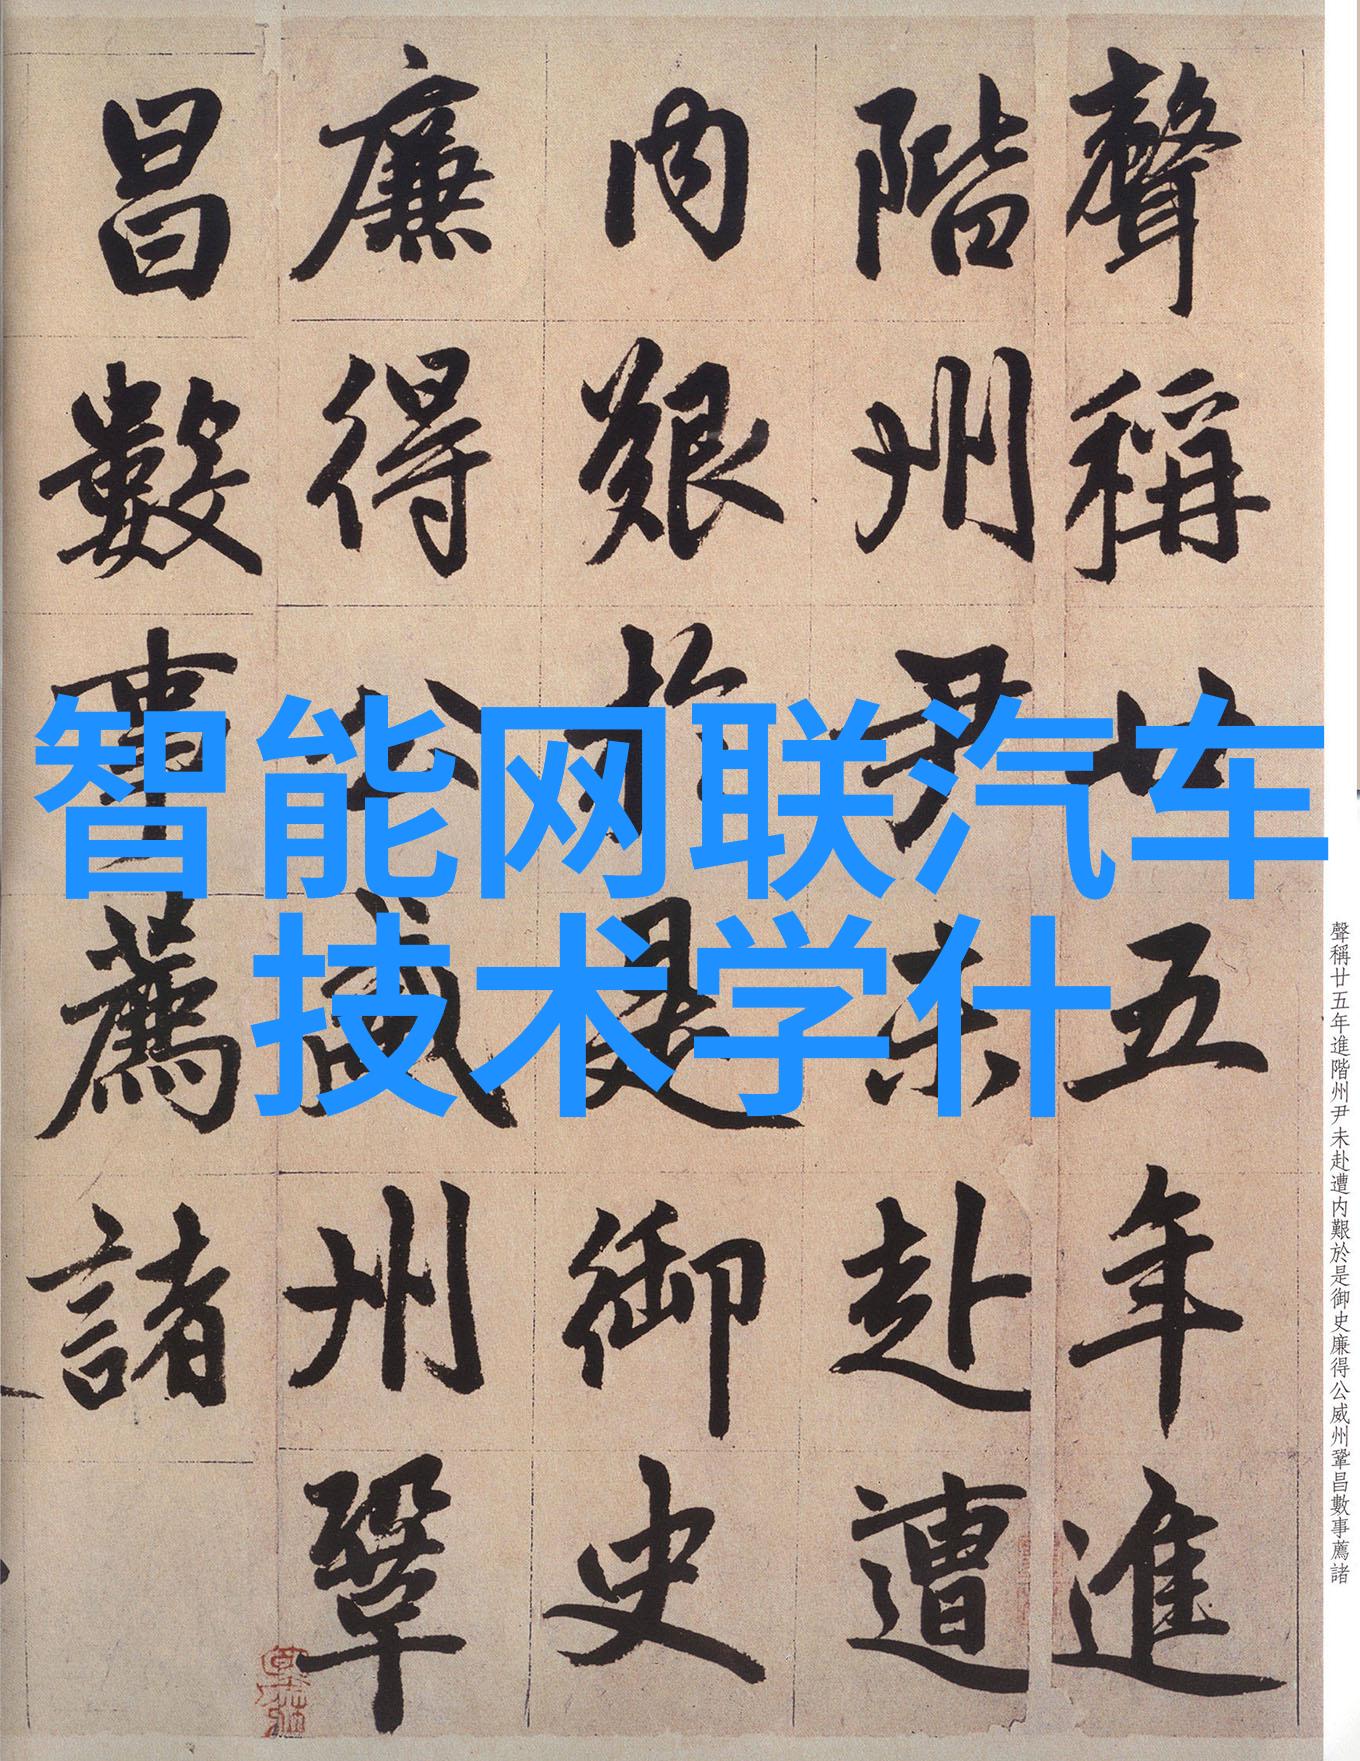 智能网联汽车
技术学什
聲稱廿五年進
階州尹未赴遭
内艱於是御史
廉得公威州鞏
昌數事薦諸
聲稱廿五年進階州尹未赴遭内艱於是御史廉得公威州鞏昌數事薦諸